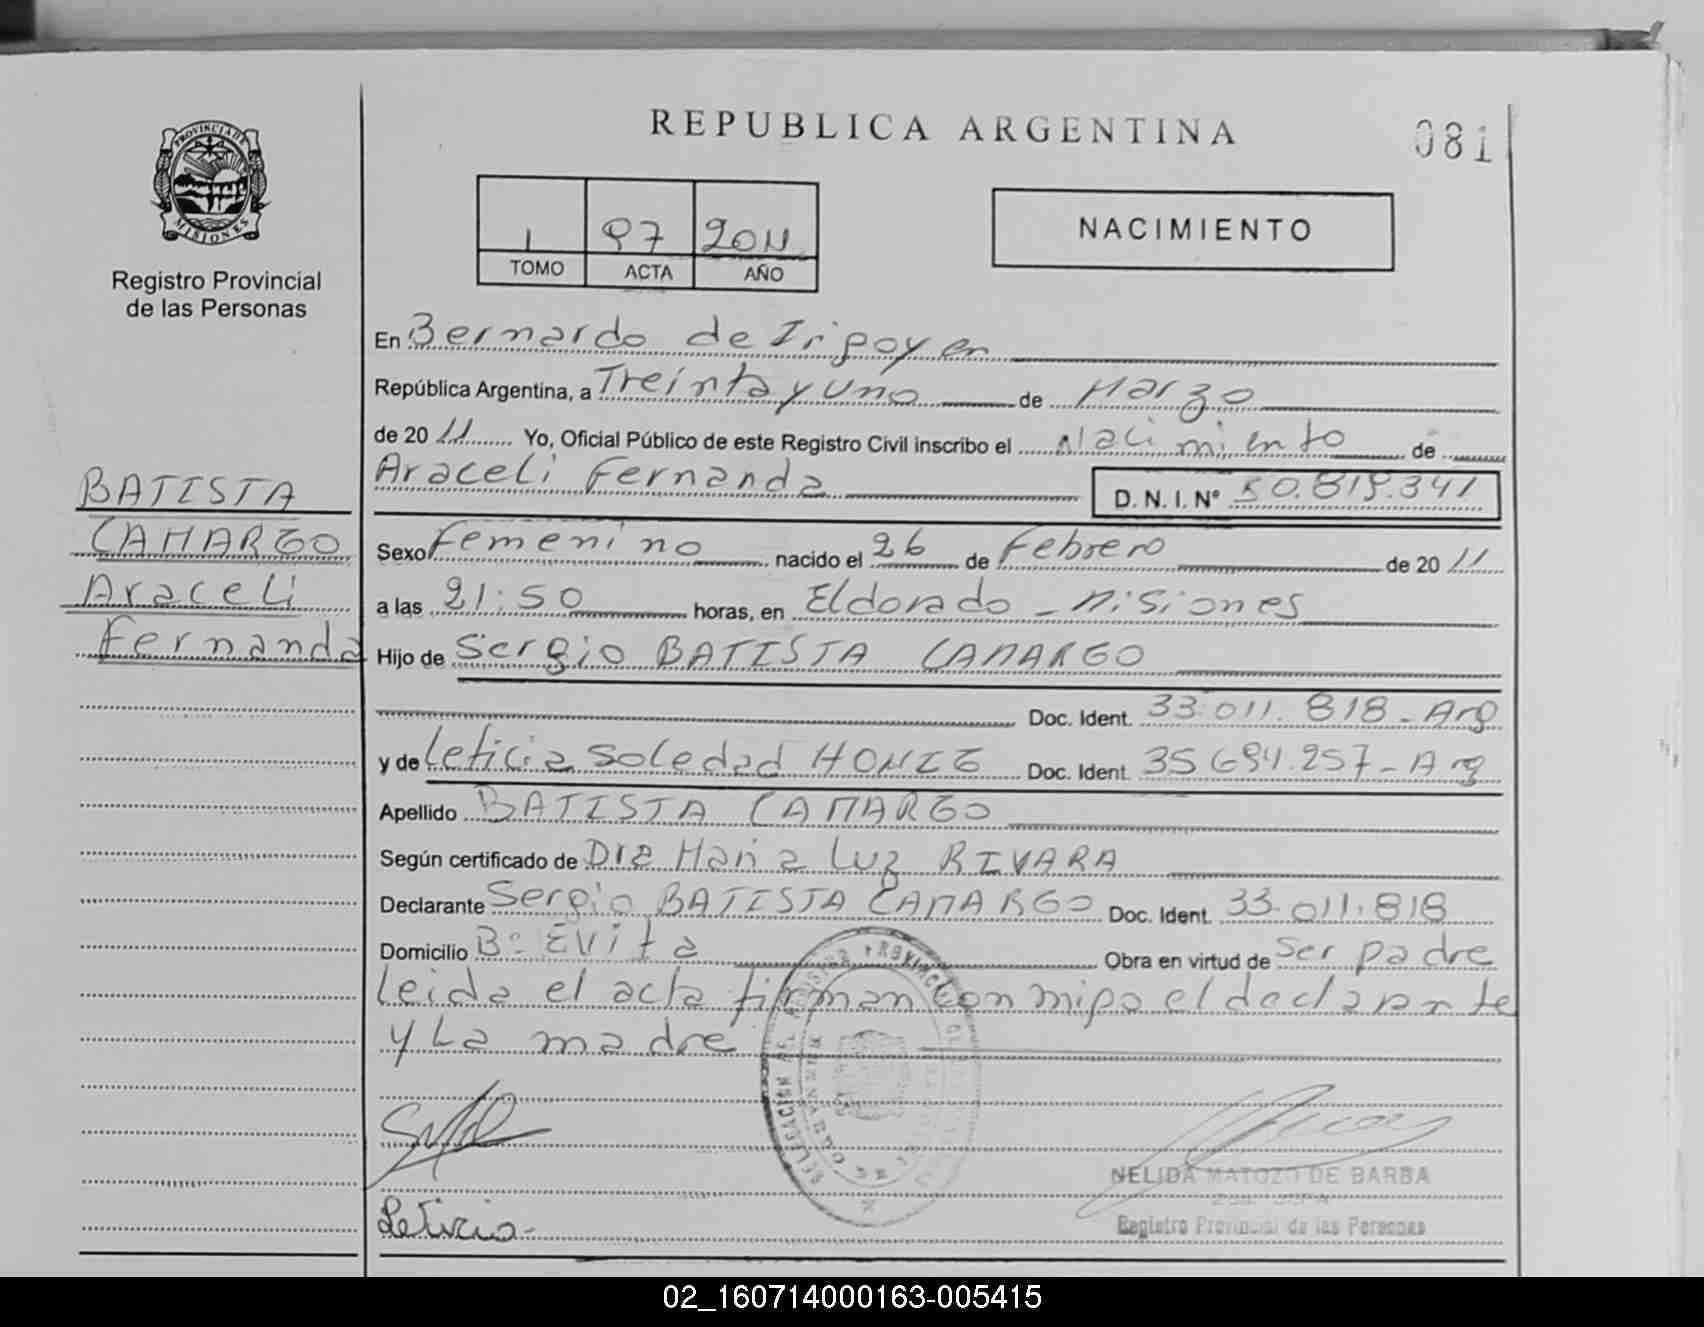 REPUBLICA ARGENTINA
081
PROVINCIA DE
MISIONES
Registro Provincial
de las Personas
1 97 2011
TOMO ACTA AÑO
NACIMIENTO
En Bernardo de Irigoyen
República Argentina, a Treinta y uno de Marzo
de 20 11 Yo, Oficial Público de este Registro Civil inscribo el Nacimiento de
Araceli Fernanda D.N.I. Nº 50.819.341
BATISTA
CAMARGO
Araceli
Fernanda
Sexo Femenino nacido el 26 de Febrero de 20 11
a las 21:50 horas, en Eldorado - Misiones
Hijo de Sergio BATISTA CAMARGO
Doc. Ident. 33.011.818 - Arg
y de Leticia Soledad Doc. Ident. 35.694.257 - Arg
Apellido BATISTA CAMARGO
Según certificado de Dra Maria Luz RIVARA
Declarante Sergio BATISTA CAMARGO Doc. Ident. 33.011.818
Domicilio Bº Evita Obra en virtud de Ser padre
Leida el acta firman conmigo el declarante
y La madre
Leticia
NELIDA MATOZO DE BARBA
Registro Provincial de las Personas
02_160714000163-005415